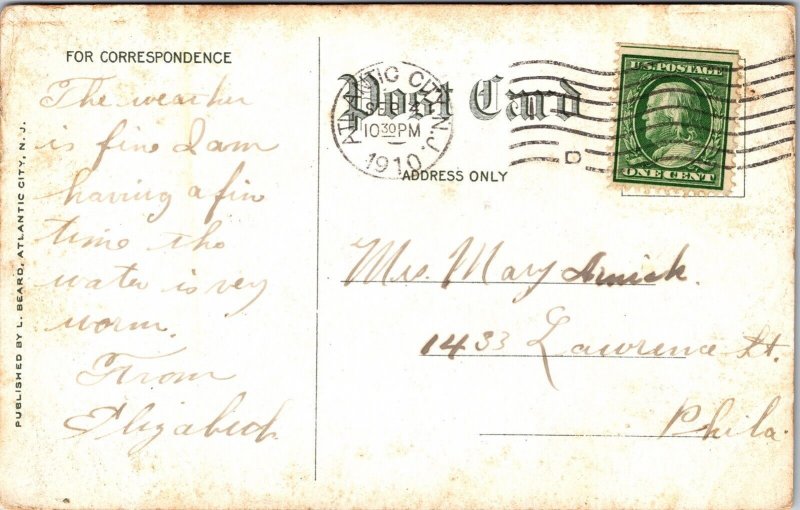 FOR CORRESPONDENCE
The weather
is fine I am
having a fin
time the
water is very
worm.
From
Elizabeth
PUBLISHED BY L. BEARD, ATLANTIC CITY, N. J.
Post Card
ADDRESS ONLY
ATLANTIC CITY, N.J.
10 30 PM
1910
D
U.S. POSTAGE
ONE CENT
Mrs. Mary
1433 Lawrence St.
Phila.